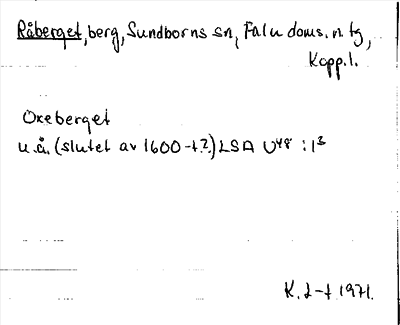 Råberget, berg, Sundborns sn, Falu doms. n. tg,
Kopp. l.
Oxeberget
u.å. (slutet av 1600-t.?) LSA U48 : 1³
K. J-t 1971.